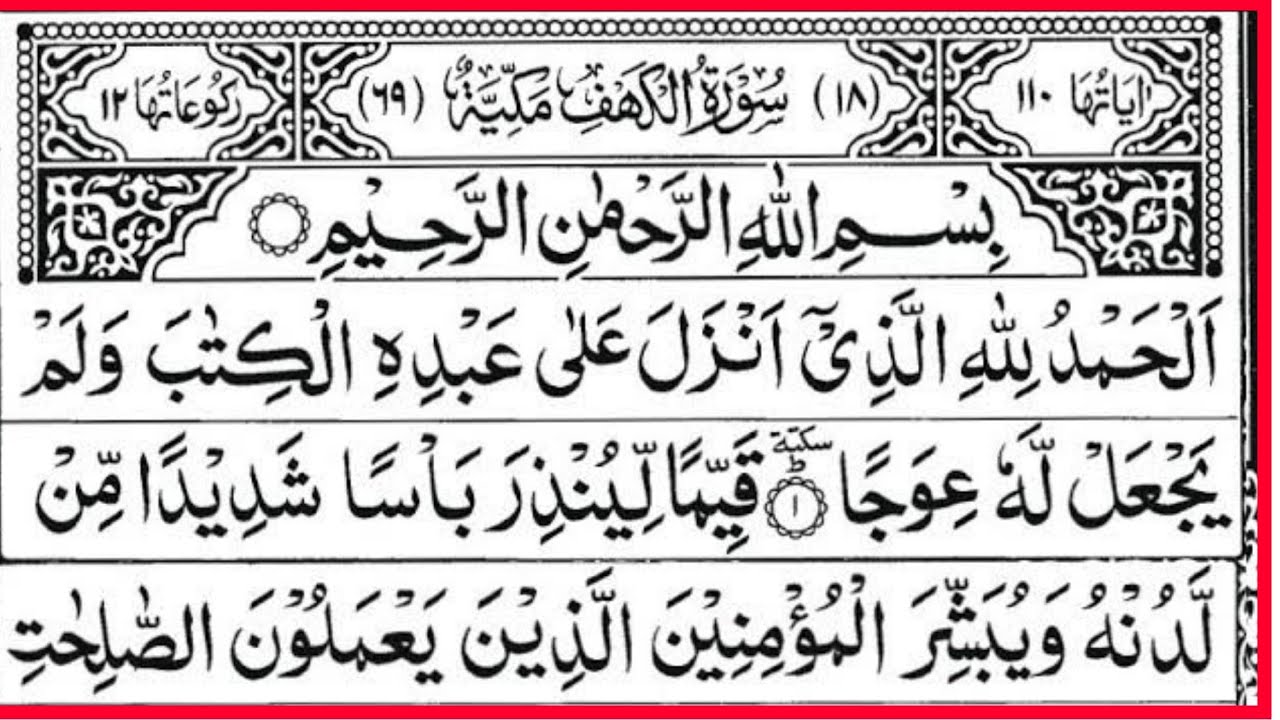 اٰيَاتُهَا ١١٠ (١٨) سُوْرَةُ الْكَهْفِ مَكِّيَّةٌ (٦٩) رُكُوْعَاتُهَا ١٢
بِسْمِ اللّٰهِ الرَّحْمٰنِ الرَّحِيْمِ
اَلْحَمْدُ لِلّٰهِ الَّذِيْۤ اَنْزَلَ عَلٰى عَبْدِهِ الْكِتٰبَ وَلَمْ
يَجْعَلْ لَّهٗ عِوَجًا ؕ سكتة ١ قَيِّمًا لِّيُنْذِرَ بَاْسًا شَدِيْدًا مِّنْ
لَّدُنْهُ وَيُبَشِّرَ الْمُؤْمِنِيْنَ الَّذِيْنَ يَعْمَلُوْنَ الصّٰلِحٰتِ